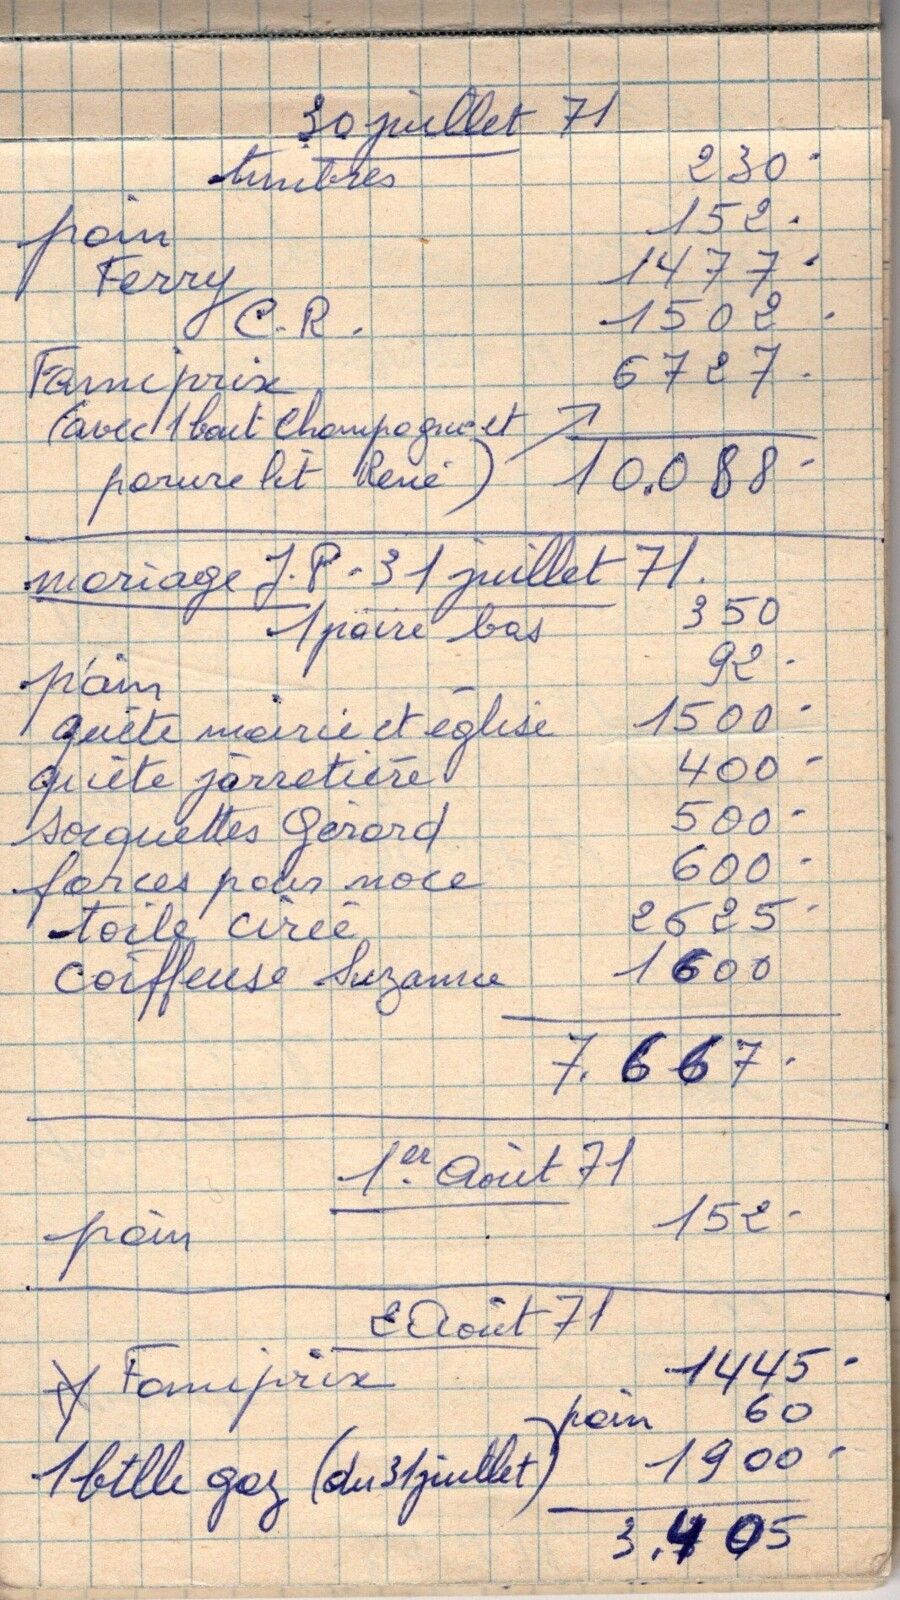 30 juillet 71
timbres 230.
pain 152.
Ferry 1477.
C.R. 1502.
Famiprix 6727.
(avec 1 bout Champagne et
parure lit René) 10.088-
mariage J.P. - 31 juillet 71.
1 paire bas 350
pain 92.
quête mairie et église 1500-
quète jarretière 400-
socquettes Gérard 500-
farces pour noce 600-
toile cirée 2625-
Coiffeuse Suzanne 1600
7.667.
1er Août 71
pain 152-
2 Août 71
Famiprix 1445-
pain 60
1 btlle gaz (du 31 juillet) 1900-
3.405